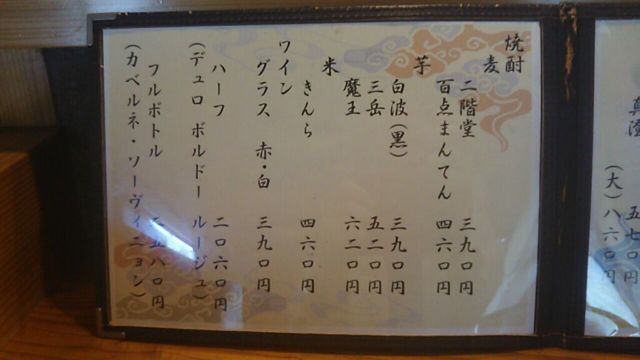 焼酎
麦
二階堂 三九〇円
百点まんてん 四六〇円
芋
白波(黒) 三九〇円
三岳 五二〇円
魔王 六二〇円
米
きんら 四六〇円
ワイン
グラス 赤・白 三九〇円
ハーフ 二〇六〇円
(デュロ ボルドー ルージュ)
フルボトル 二五八〇円
(カベルネ・ソーヴィニョン)
五七〇円
(大)八六〇円